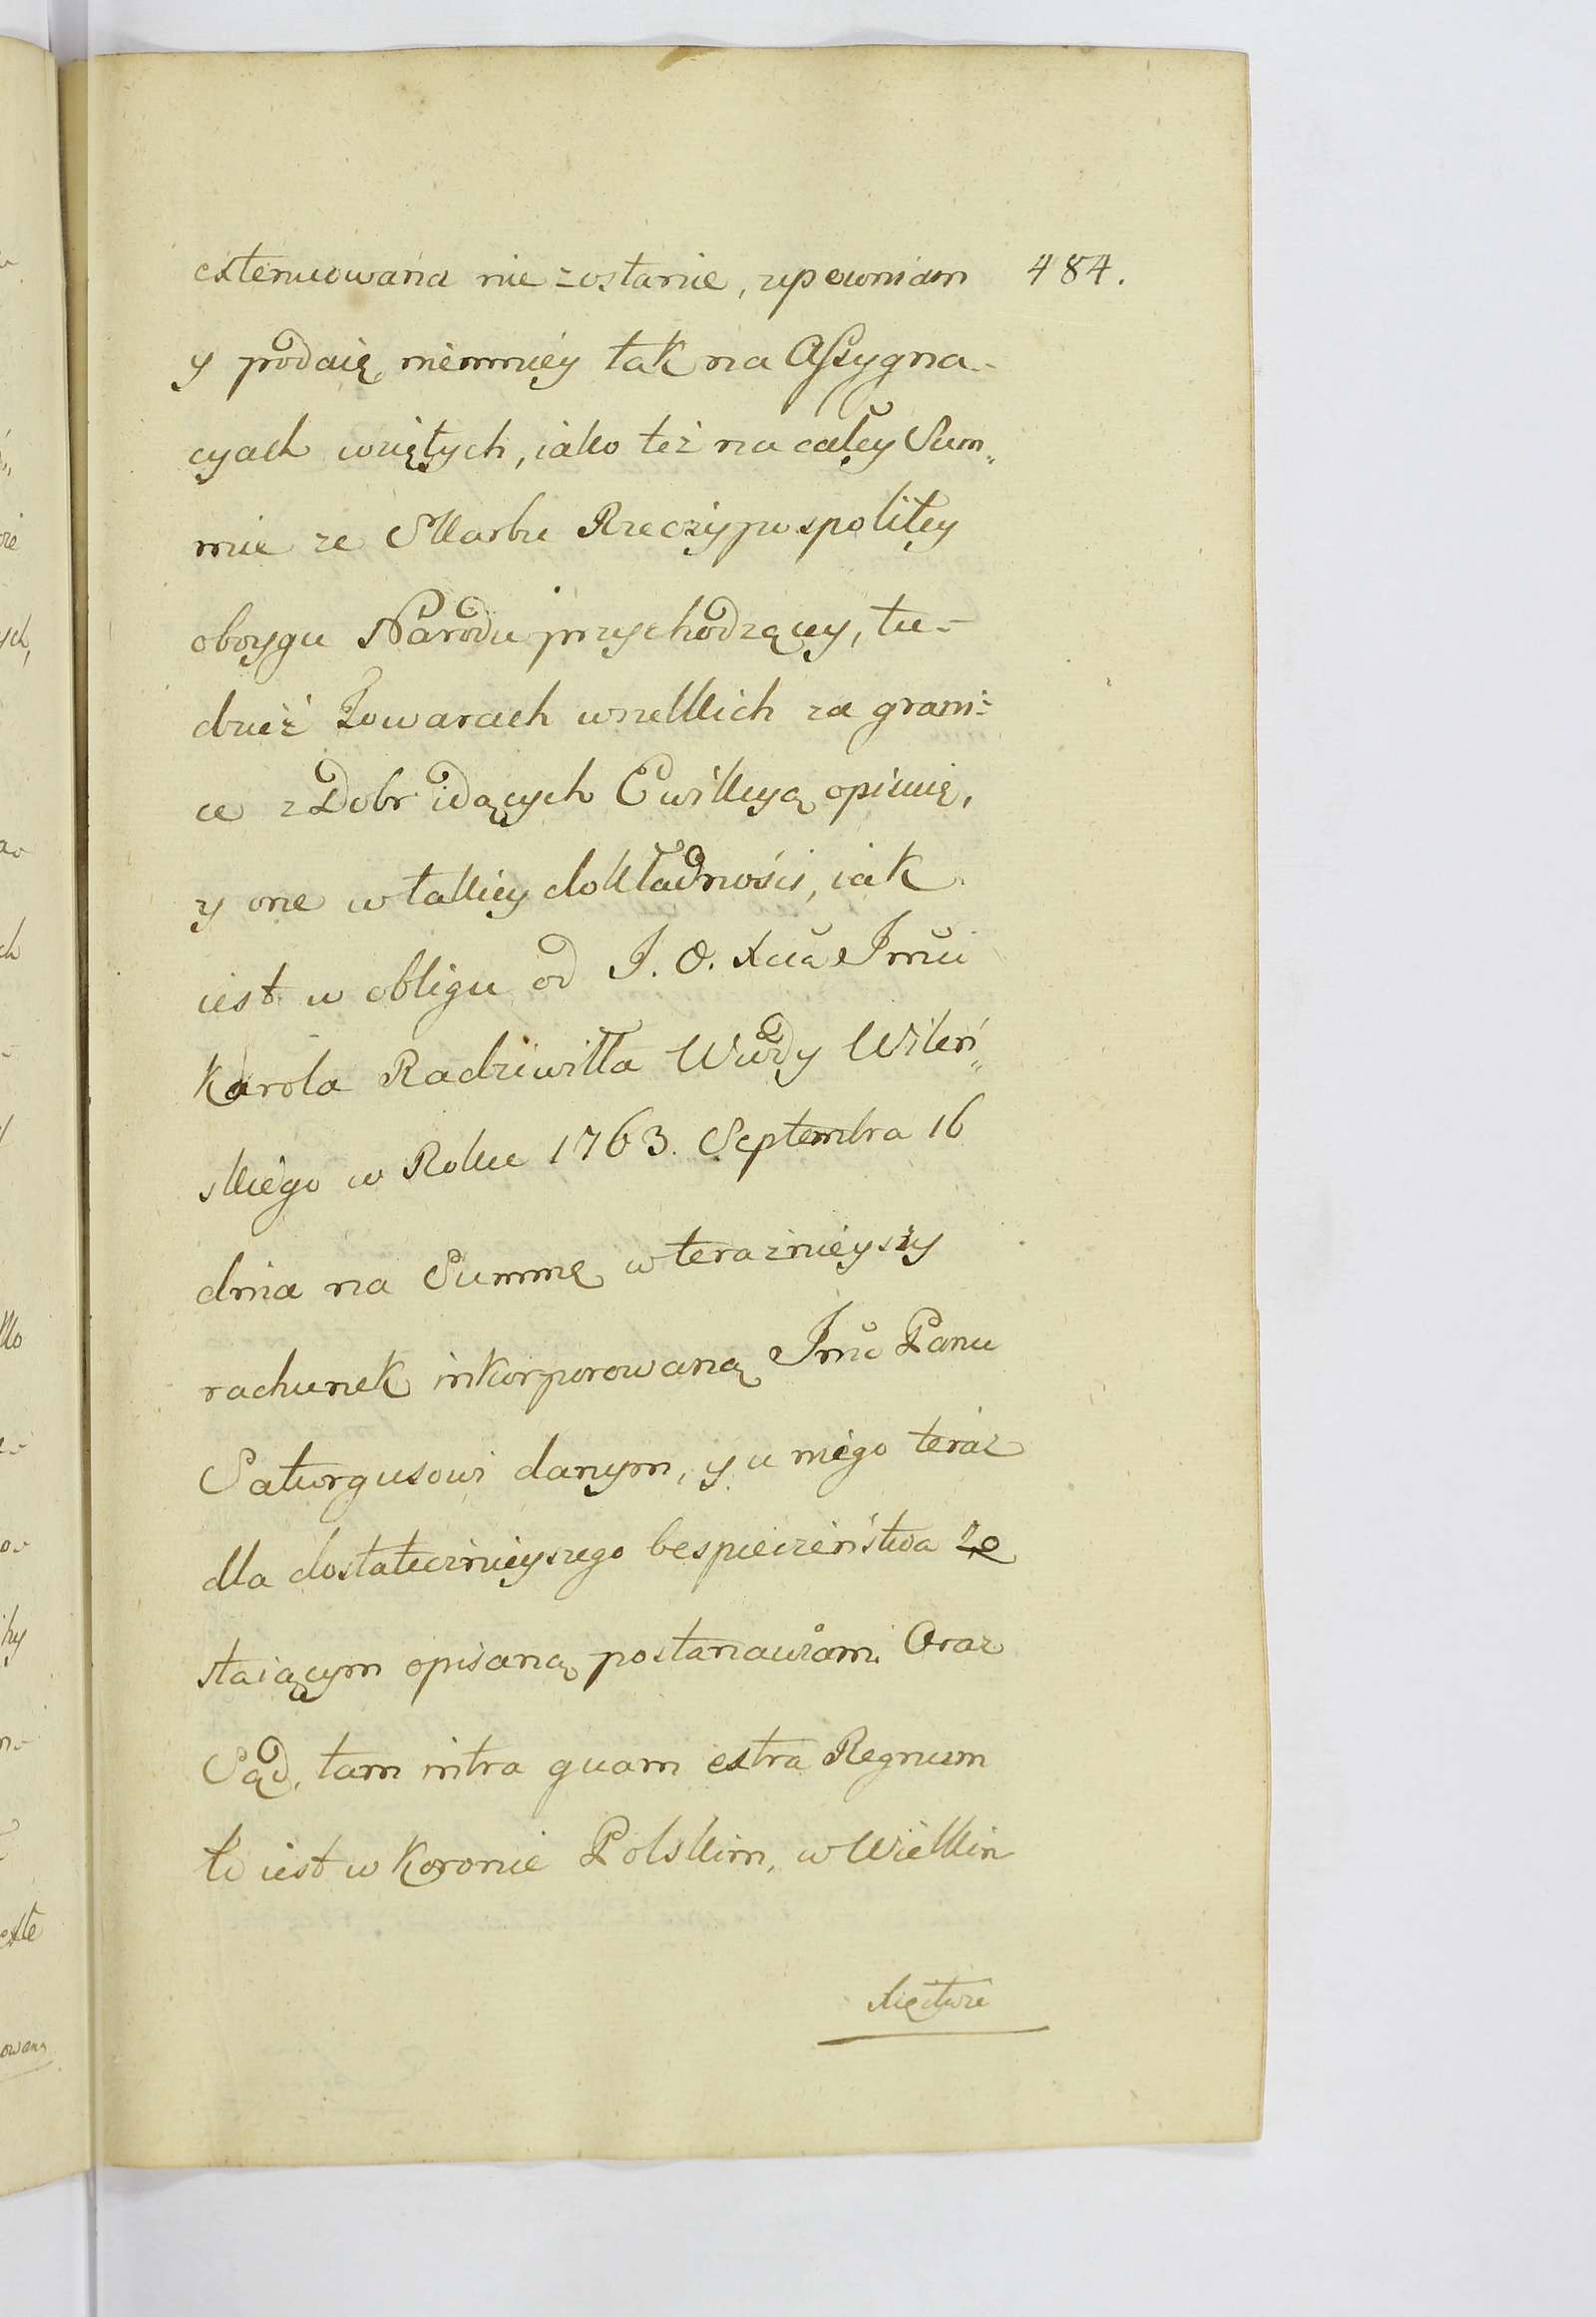 extenuowana nie zostanie, upewniam 484.
y podaię, niemniey tak na Assygna-
cyach wziętych, iako też na całey Sum„
mie ze Skarbu Rzeczypospolitey
oboygu Narodu przychodzącey, tu-
dzież Towarach wszelkich za grani:
ce z Dobr idących Ewikcyą opisuię,
y one w takiey dokładności, iak
iest w obligu od J. O. Xcia Jmci
Karola Radziwiłła Wwdy Wileń„
skiego w Roku 1763. Septembra 16
dnia na Summę w teraznieyszy
rachunek inkorporowaną Jmc Panu
Saturgusowi danym, y u niego teraz
dla dostatecznieyszego bespieczeństwa zo
staiącym opisaną postanawiam. Oraz
Sąd, tam intra quam extra Regnum
to iest w Koronie Polskim, w Wielkim
Xięstwie